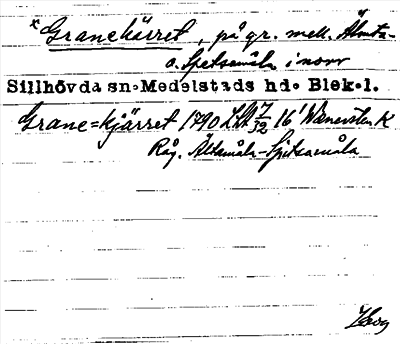 * Granekärret, på gr. mell. Älmta-
o. Spetsamåla i norr
Sillhövda sn. Medelstads hd. Blek.l.
Grane=kjärret 1790 LSA 7/32 16'
Råg. Ältamåla-Spitsamåla